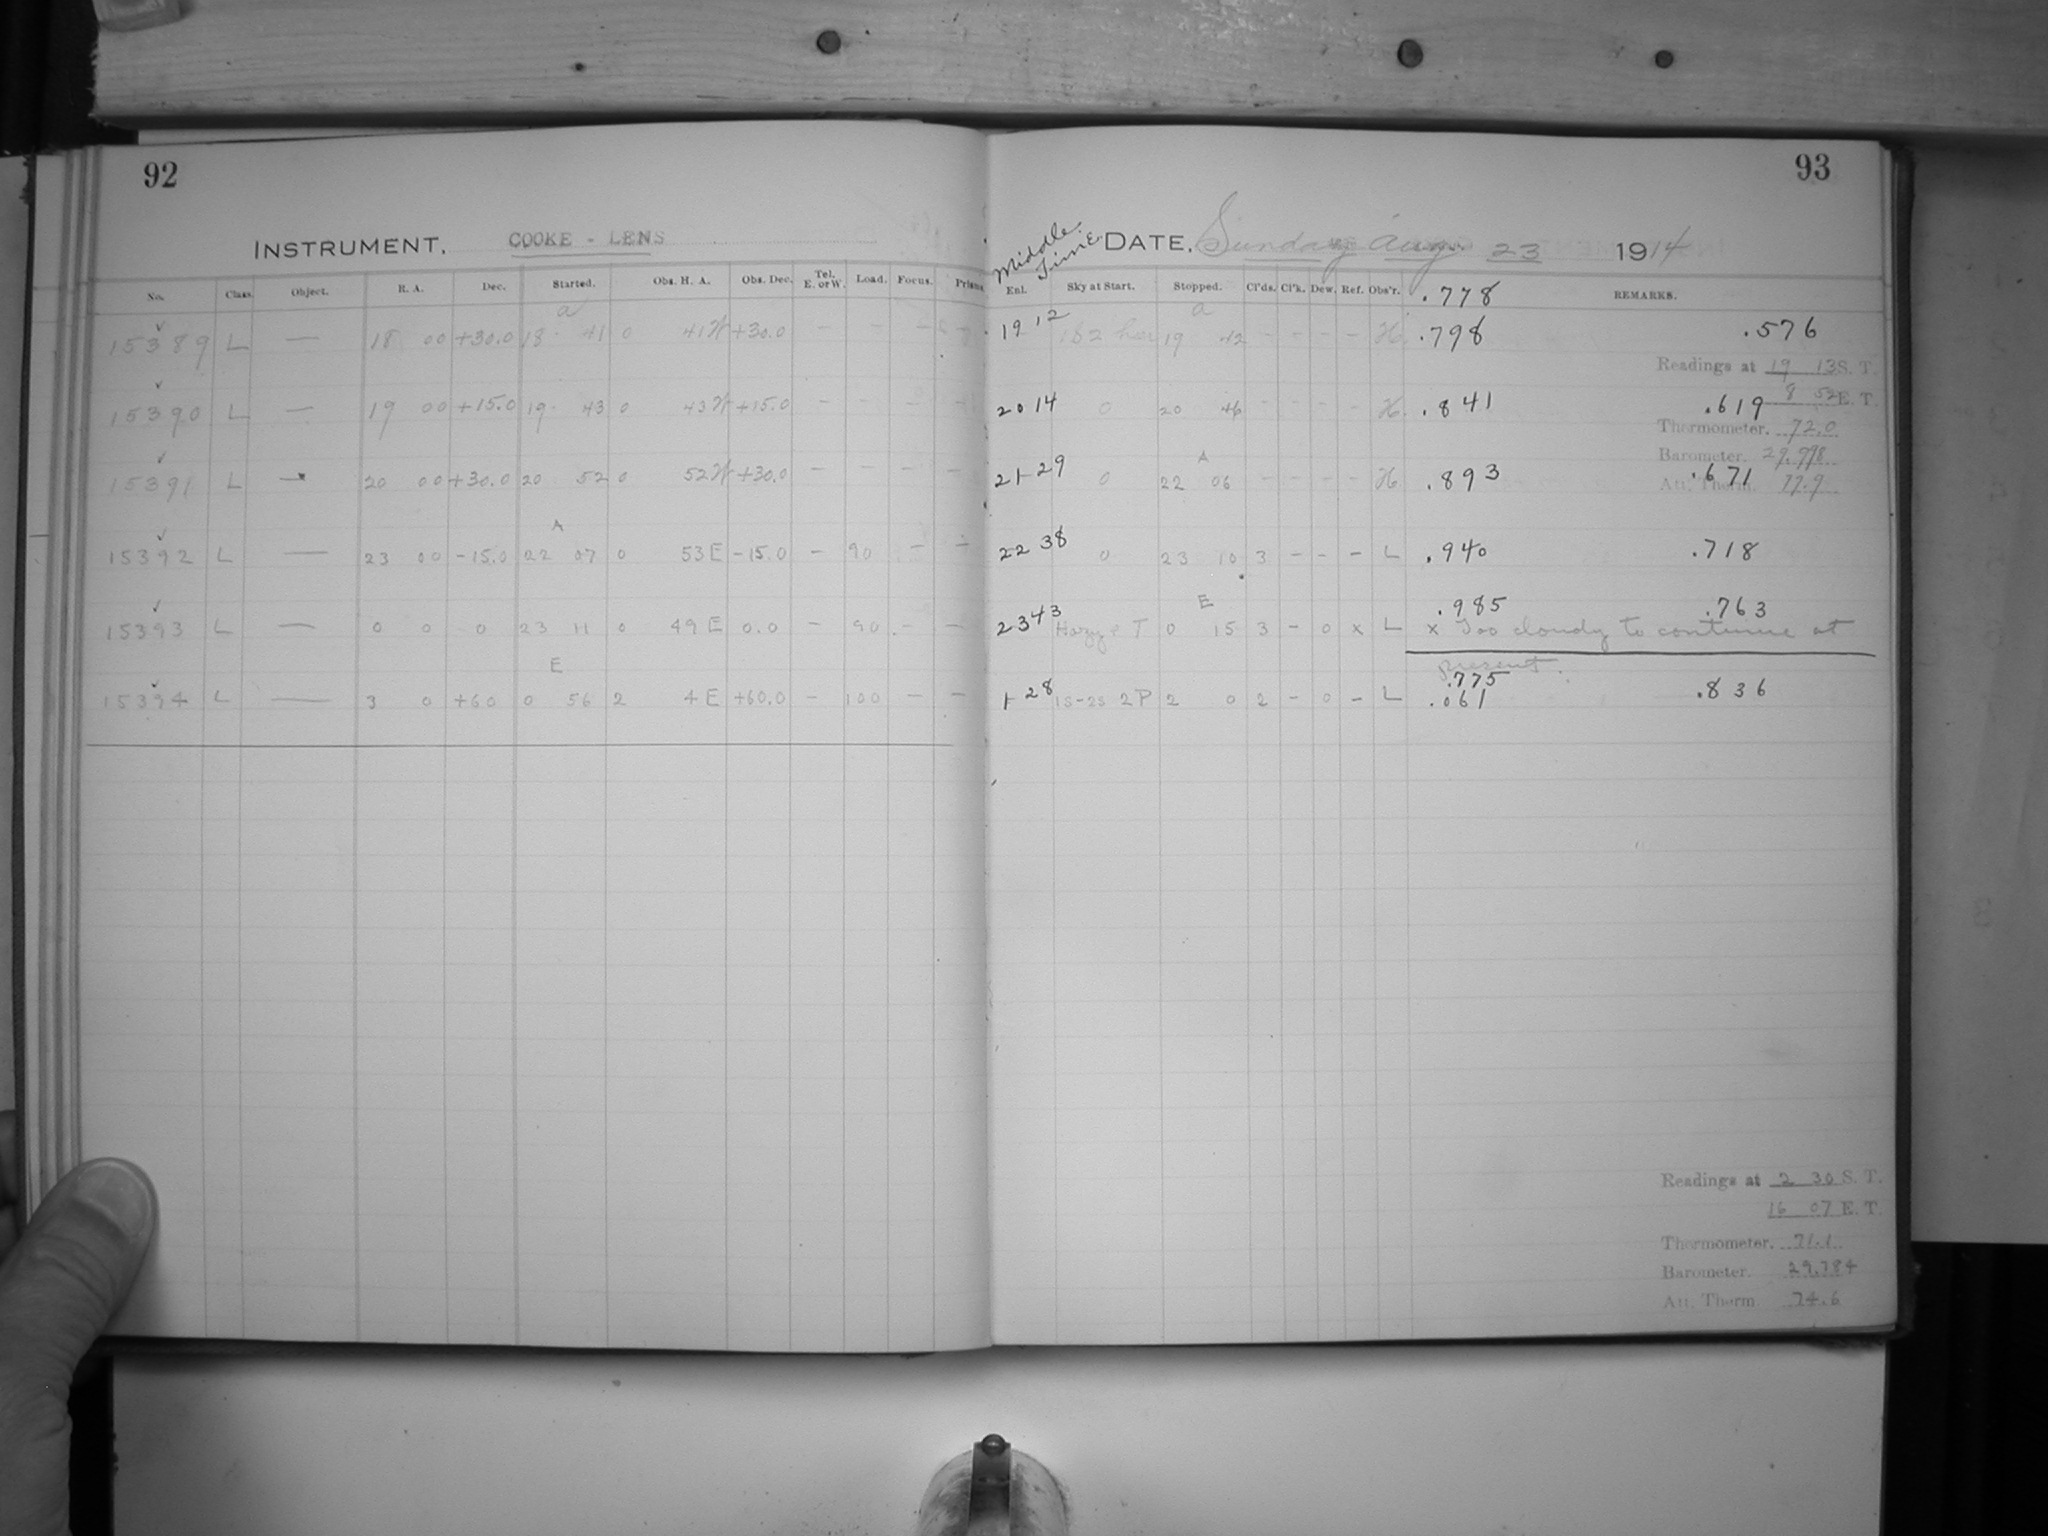 92
INSTRUMENT. COOKE - LENS
No. Class. Object. R. A. Dec. Started. Obs. H. A. Obs. Dec. Tel. E. or W. Load. Focus. Prism.
a
15389 L — 18 00 +30.0 18 41 0 41 W +30.0 — — — —
15390 L — 19 00 +15.0 19 43 0 43 W +15.0 — — — —
15391 L — 20 00 +30.0 20 52 0 52 W +30.0 — — — —
A
15392 L — 23 00 -15.0 22 07 0 53 E -15.0 — 90 — —
15393 L — 0 0 0 23 11 0 49 E 0.0 — 90 — —
E
15394 L — 3 0 +60 0 56 2 4 E +60.0 — 100 — —
93
Middle Time DATE. Sunday Aug. 23 1914
Enl. Sky at Start. Stopped. Cl'ds. Cl'k. Dew. Ref. Obs'r. .778 REMARKS.
a
19 12 19 42 - - - - H. .798 .576
Readings at 19 13 S. T.
8 52 E. T.
20 14 0 20 46 - - - - H. .841 .619
Thermometer. 72.0
Barometer. 29.778
A
21 29 0 22 06 - - - - H. .893 .671
Att. Therm. 77.9
22 38 0 23 10 3 - - - L .940 .718
E .985 .763
23 43 Hazy & T 0 15 3 - 0 x L x Too cloudy to continue at
present.
.775
1 28 1S-2S 2P 2 0 2 - 0 - L .061 .836
Readings at 2 30 S. T.
16 07 E. T.
Thermometer. 71.1
Barometer. 29.784
Att. Therm. 74.6